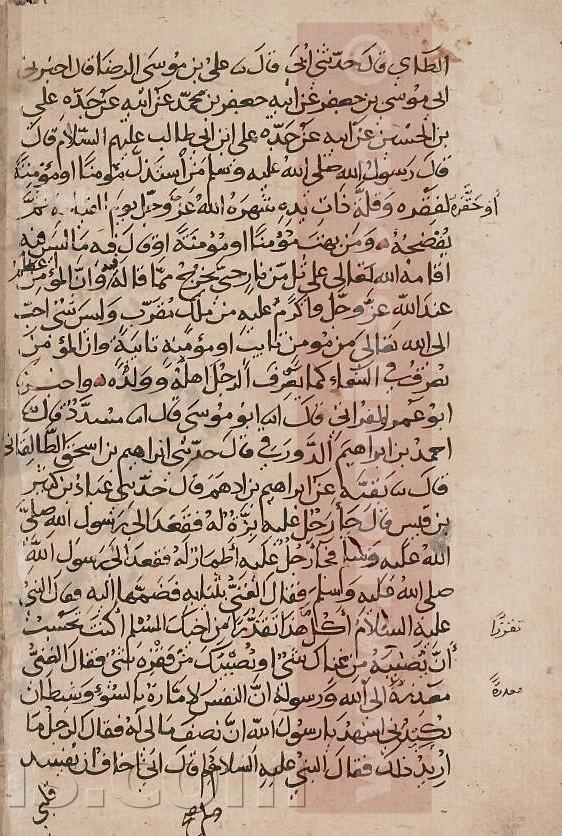 الطاي قال حدثني ابي قال نا علي بن موسى الرضا قال اخبرني
ابي موسى بن جعفر عن ابيه جعفر بن محمد عن ابيه عن جده علي
بن الحسين عن ابيه عن جده علي ابن ابي طالب عليهم السلام قال
قال رسول الله صلى الله عليه وسلم من استذل مومنا او مؤمنة
او حقره لفقره وقلة ذات يده شهره الله عز وجل يوم القيامة ثم
يفضحه ومن بهت مؤمنا او مؤمنة او قال فيه ما ليس فيه
اقامه الله تعالى على تل من نار حتى يخرج مما قاله فيه وان المؤمن
عند الله عز وجل واكرم عليه من ملك مقرب وليس شي احب
الى الله تعالى من مومن تايب او مؤمنة تايبة وان المؤمن
يعرف في السماء كما يعرف الرجل اهله وولده واخبرنا
ابو عمرو الفراتي قال انا ابو موسى قال نا مسدد قال نا
احمد بن ابراهيم الدورقي قال حدثني ابراهيم بن اسحق الطالقاني
قال نا بقية عن ابراهيم بن ادهم قال حدثني عباد بن كثير
بن قيس قال جا رجل عليه بزة له فقعد الى رسول الله صلى
الله عليه وسلم فجآ رجل عليه اطمار له فقعد الى رسول الله
صلى الله عليه وسلم فقال الغني بثيابه فضمها اليه فقال النبي
عليه السلام اكل هذا تقذرا من اخيك المسلم اكنت تحسب
ان يصيبه من غناك شي او يصيبك من فقره شي فقال الغني
معذرة الى الله ورسوله ان النفس لامارة بالسوء وشيطان
يكيدني اشهد يا رسول الله ان نصف مالي له فقال الرجل ما
اريد ذلك فقال النبي عليه السلام لم قال اني اخاف ان يفسد
قلبي
تقذرا
معذرة